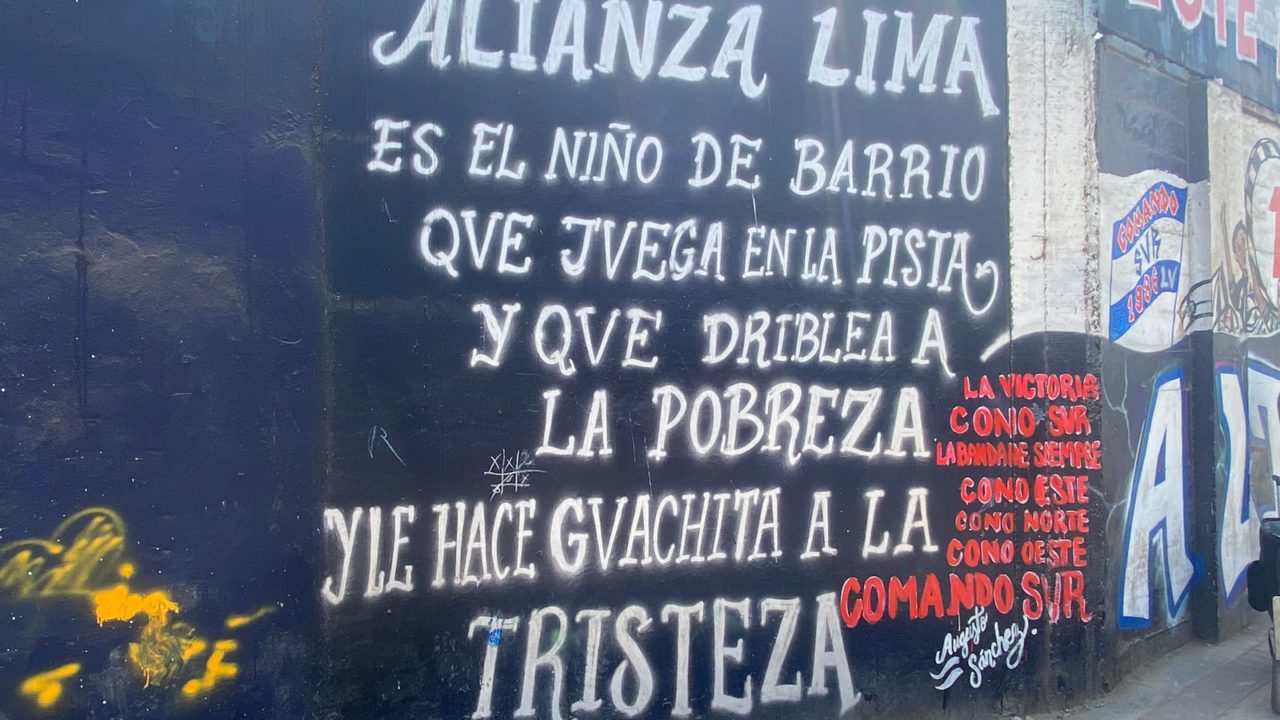 ALIANZA LIMA
ES EL NIÑO DE BARRIO
QVE JVEGA EN LA PISTA
Y QVE DRIBLEA A
LA POBREZA
Y LE HACE GVACHITA A LA
TRISTEZA
LA VICTORIA
CONO SVR
LA BANDA DE SIEMPRE
CONO ESTE
CONO NORTE
CONO OESTE
COMANDO SVR
Augusto
Sánchez
COMANDO
SVR
1986 LV